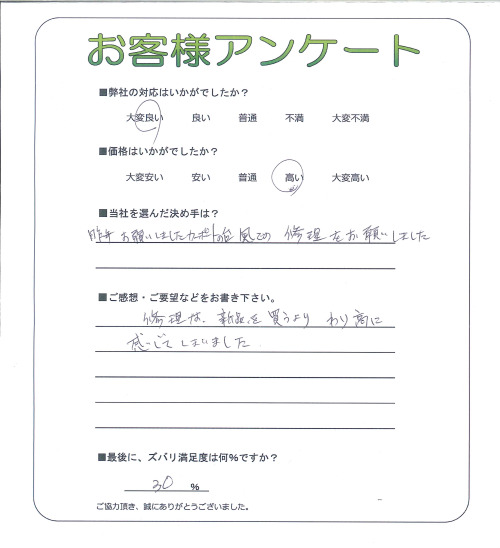 お客様アンケート
■弊社の対応はいかがでしたか?
大変良い 良い 普通 不満 大変不満
■価格はいかがでしたか?
大変安い 安い 普通 高い 大変高い
■当社を選んだ決め手は?
昨年お願いしましたカーポートの台風での修理をお願いしました
■ご感想・ご要望などをお書き下さい。
修理は、新品を買うより わり高に
感じてしまいました
■最後に、ズバリ満足度は何%ですか?
30 %
ご協力頂き、誠にありがとうございました。